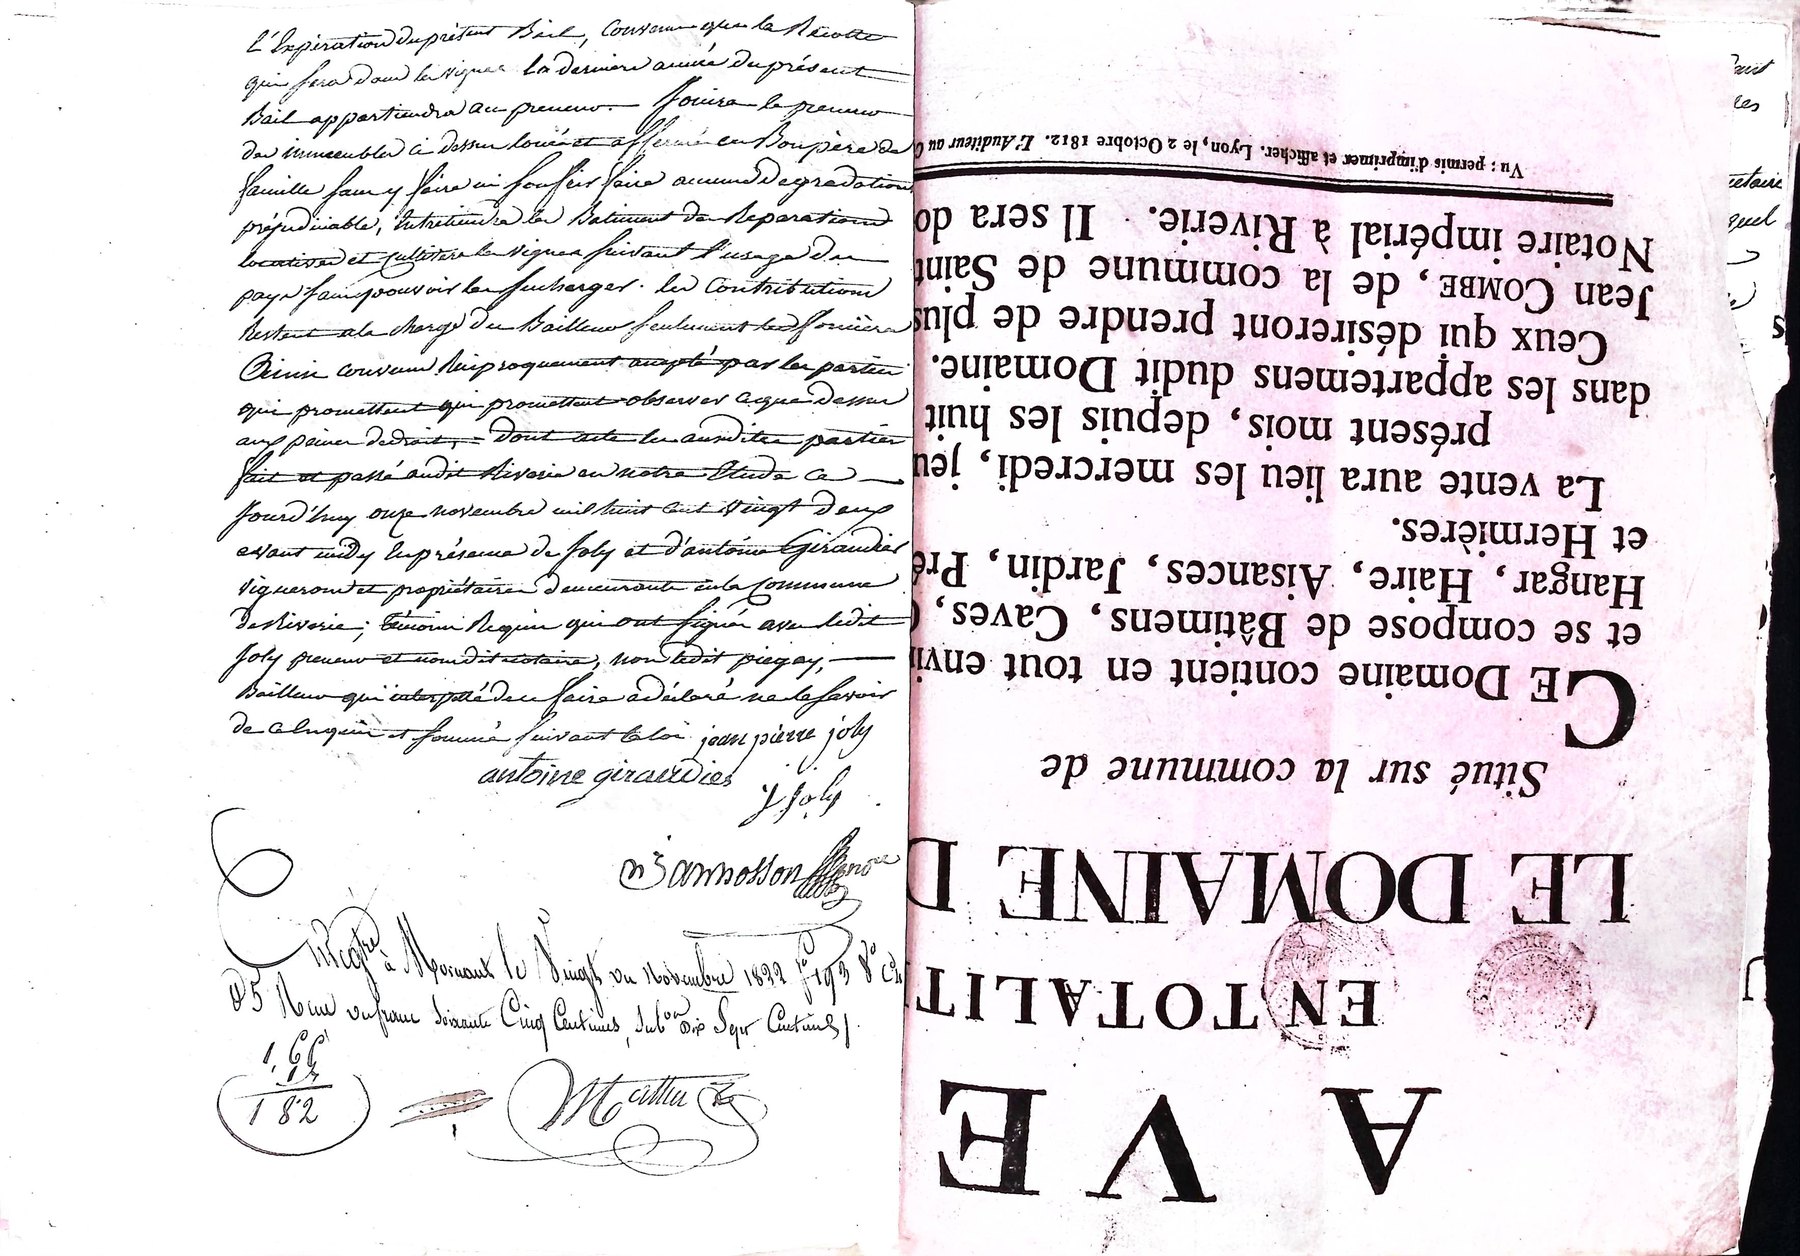 L'Expiration du présent Bail, convenu que la Récolte
qui sera dans les vignes la derniere année du présent
Bail appartiendra au preneur. Jouira le preneur
des immeubles ci dessus loués et affermés en Bon père de
famille sans y faire ni souffrir faire aucune degradation
préjudiciable, Entretiendra les Batiments de Reparations
locatives et cultivera les vignes suivant l'usage du
pays sans pouvoir les surcharger. les Contributions
Restent a la charge du Bailleur seulement les foncières
Ainsi convenu Réciproquement accepté par les parties
qui promettent qui promettent observer ce que dessus
aux peines de droit, = dont acte les susdites parties
fait et passé audit Riverie en notre Etude ce
Jourd'huy onze novembre mil huit cent vingt deux
avant midy En présence de Joly et d'antoine Giraudier
vignerons et propriétaires demeurants en la Commune
de Riverie; témoins Requis qui ont signés avec ledit
Joly preneur et nousdit notaire, non ledit piegay,
Bailleur qui interpellé de ce faire a déclaré ne le savoir
de ce Enquis et sommé suivant la loi jean pierre joly
antoine giraudier
J Joly
Bannosson
Enregtré à Mornant le Vingt un Novembre 1822 fo 193 Vo Ce
Reçu un franc soixante Cinq Centimes, subon dix Sept Centimes
1,65
17
1 82
Mathu
A VE
EN TOTALIT
LE DOMAINE D
Situé sur la commune de
CE Domaine contient en tout envi
et se compose de Bâtimens, Caves,
Hangar, Haire, Aisances, Jardin, Pré
et Hermières.
La vente aura lieu les mercredi, jeu
présent mois, depuis les huit
dans les appartemens dudit Domaine.
Ceux qui désireront prendre de plus
Jean COMBE, de la commune de Saint
Notaire impérial à Riverie. Il sera do
Vu : permis d'imprimer et afficher. Lyon, le 2 Octobre 1812. L'Auditeur au